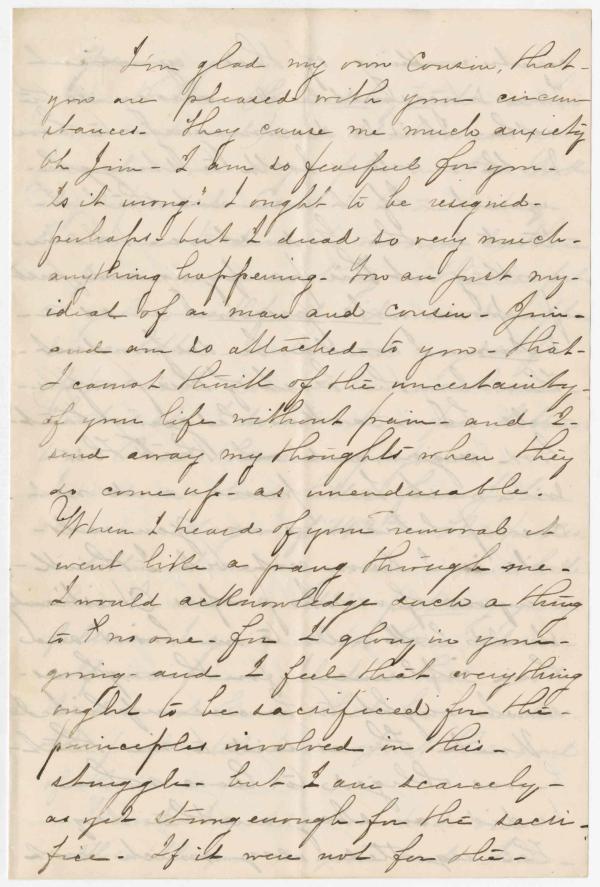 I'm glad my own Cousin, that-
you are pleased with your circum
stances- They cause me much anxiety
Oh Jim- I am so fearful for you-
Is it wrong? I ought to be resigned-
perhaps- but I dread so very much-
anything happening- You are just my-
ideal of a man and cousin- Jim-
and am so attached to you- that-
I cannot think of the uncertainty-
of your life without pain- and I-
send away my thoughts when they
do come up- as unendurable.
When I heard of your removal it
went like a pang through me-
I would acknowledge such a thing
to no one- for I glory in your-
going- and I feel that everything
ought to be sacrificed for the-
principles involved in this-
struggle- but I am scarcely-
as yet strong enough- for the sacri-
fice- If it were not for the-